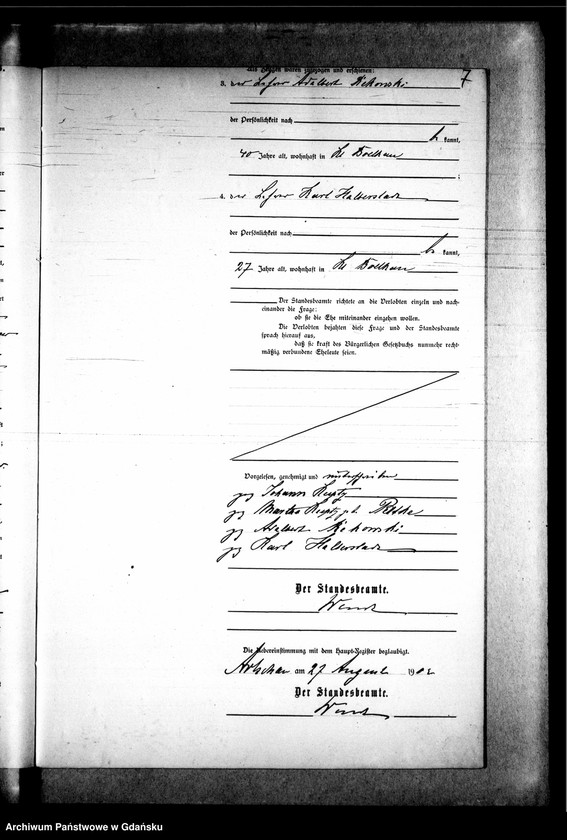 Als Zeugen waren zugezogen und erschienen:
7
3. der Lehrer Adalbert Kikowski
der Persönlichkeit nach
be kannt,
40 Jahre alt, wohnhaft in Kl Boelkau
;
4. der Lehrer Karl Halberstadt
der Persönlichkeit nach
be kannt,
27 Jahre alt, wohnhaft in Kl Boelkau
Der Standesbeamte richtete an die Verlobten einzeln und nach-
einander die Frage:
ob sie die Ehe miteinander eingehen wollen.
Die Verlobten bejahten diese Frage und der Standesbeamte
sprach hierauf aus,
daß sie kraft des Bürgerlichen Gesetzbuchs nunmehr recht-
mäßig verbundene Eheleute seien.
Vorgelesen, genehmigt und unterschrieben
gez Johann
gez Martha geb.
gez Adalbert Kikowski
gez Karl Halberstadt
Der Standesbeamte.
Wendt
Die Uebereinstimmung mit dem Haupt-Register beglaubigt.
am 27 August 190
Der Standesbeamte.
Wendt
Archiwum Państwowe w Gdańsku